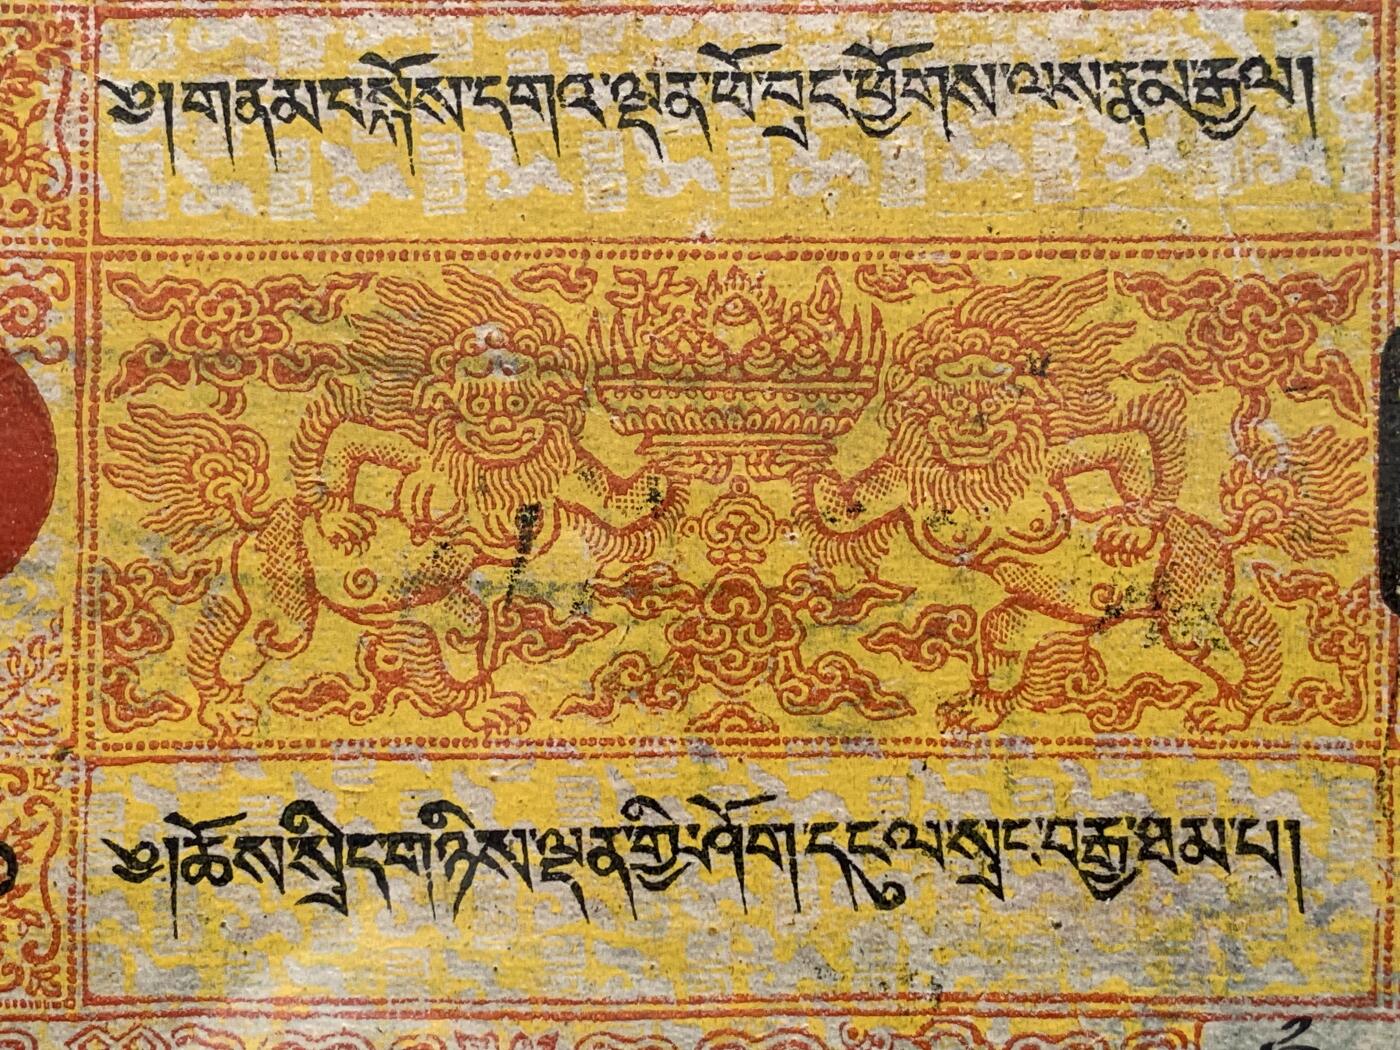 ༄། གནམ་བསྐོས་དགའ་ལྡན་ཕོ་བྲང་ཕྱོགས་ལས་རྣམ་རྒྱལ།
༄། ཆོས་སྲིད་གཉིས་ལྡན་གྱི་ཤོག་དངུལ་སྲང་བརྒྱ་ཐམ་པ།